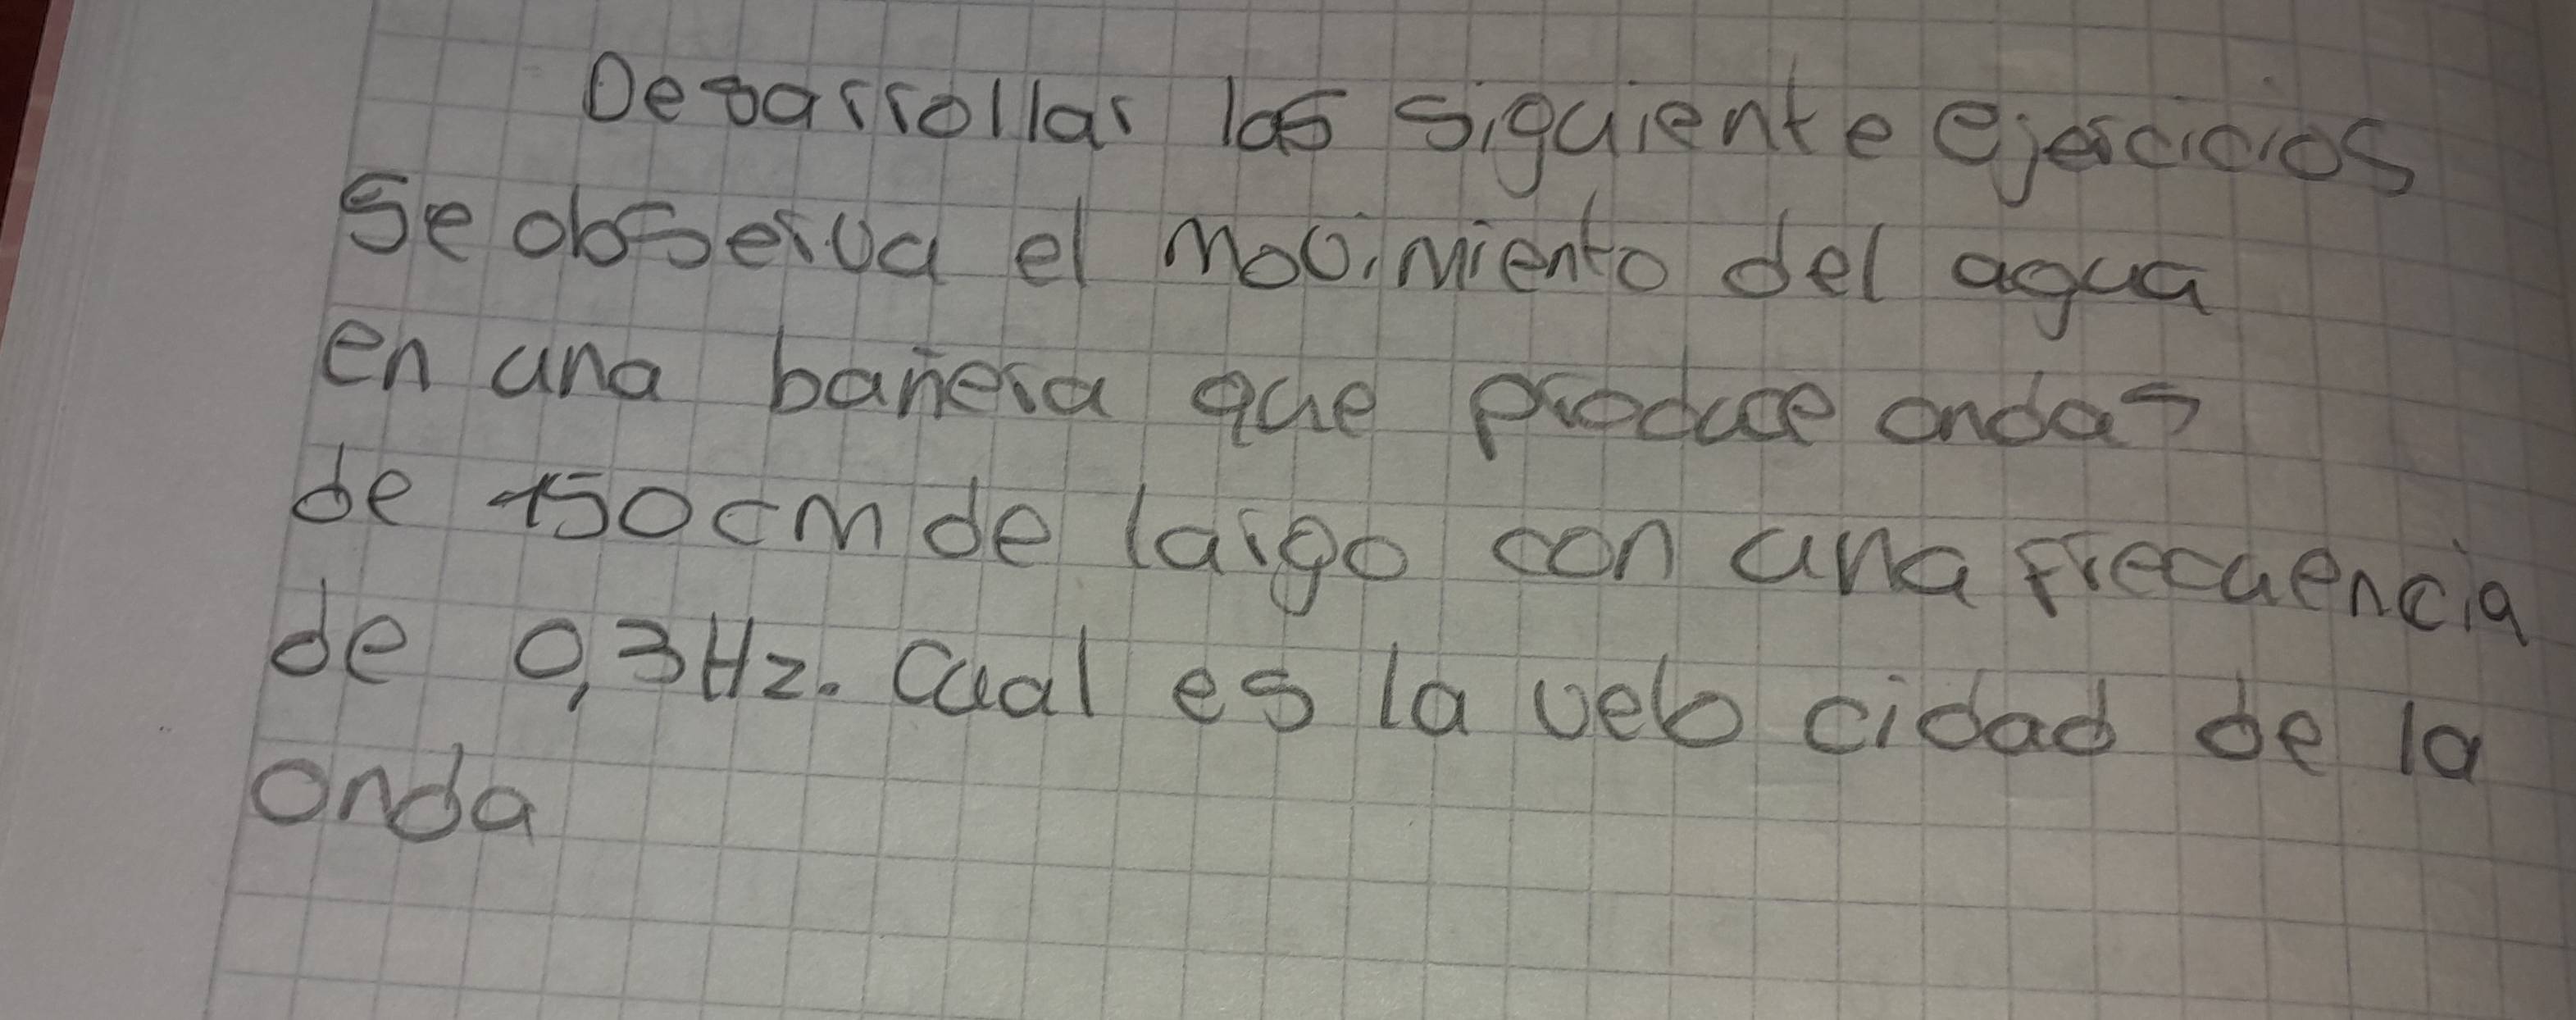 Desarrollar los siguiente ejercicios
Se observa el movimiento del agua
en una bañera que produce ondas
de 150cm de largo con una frecuencia
de 0,3Hz. Cual es la velo cidad de la
onda